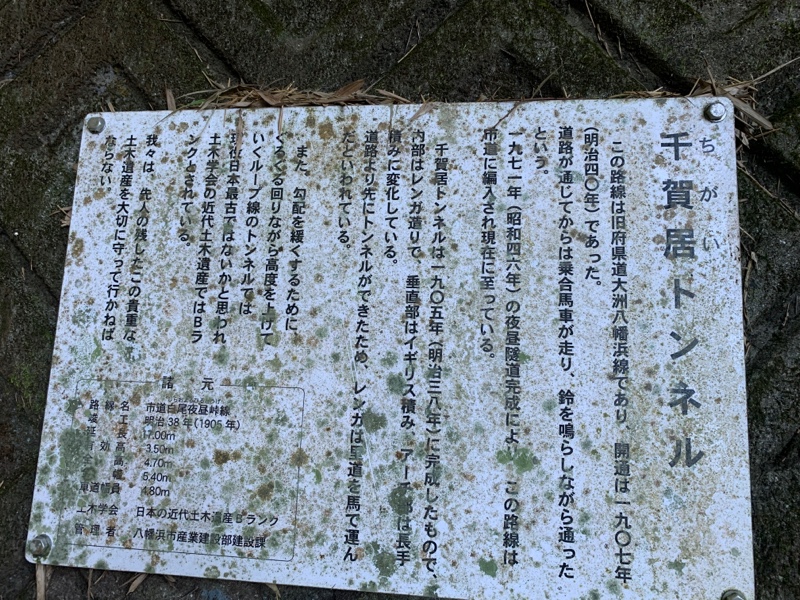 ちがい
千賀居トンネル
この路線は旧府県道大洲八幡浜線であり、開通は一九〇七年
(明治四〇年)であった。
道路が通じてからは乗合馬車が走り、鈴を鳴らしながら通った
という。
一九七一年(昭和四六年)の夜昼隧道完成により この路線は
市道に編入され現在に至っている。
千賀居トンネルは一九〇五年(明治三八年)に完成したもので、
内部はレンガ造りで 垂直部はイギリス積み アーチ部は長手
積みに変化している。
道路より先にトンネルができたため、レンガは里道を馬で運ん
だといわれている。
また、勾配を緩くするために
くるくる回りながら高度を上げて
いくループ線のトンネルでは
現役日本最古ではないかと思われ
土木学会の近代土木遺産ではBラ
ンクとされている。
我々は 先人の残したこの貴重な
土木遺産を大切に守って行かねば
ならない
諸元
路線名 市道白尾夜昼峠線
工 明治38年(1905年)
延長 17.00m
効 高 3.50m
高 4.70m
幅 5.40m
車道幅員 4.80m
土木学会 日本の近代土木遺産Bランク
管理者 八幡浜市産業建設部建設課